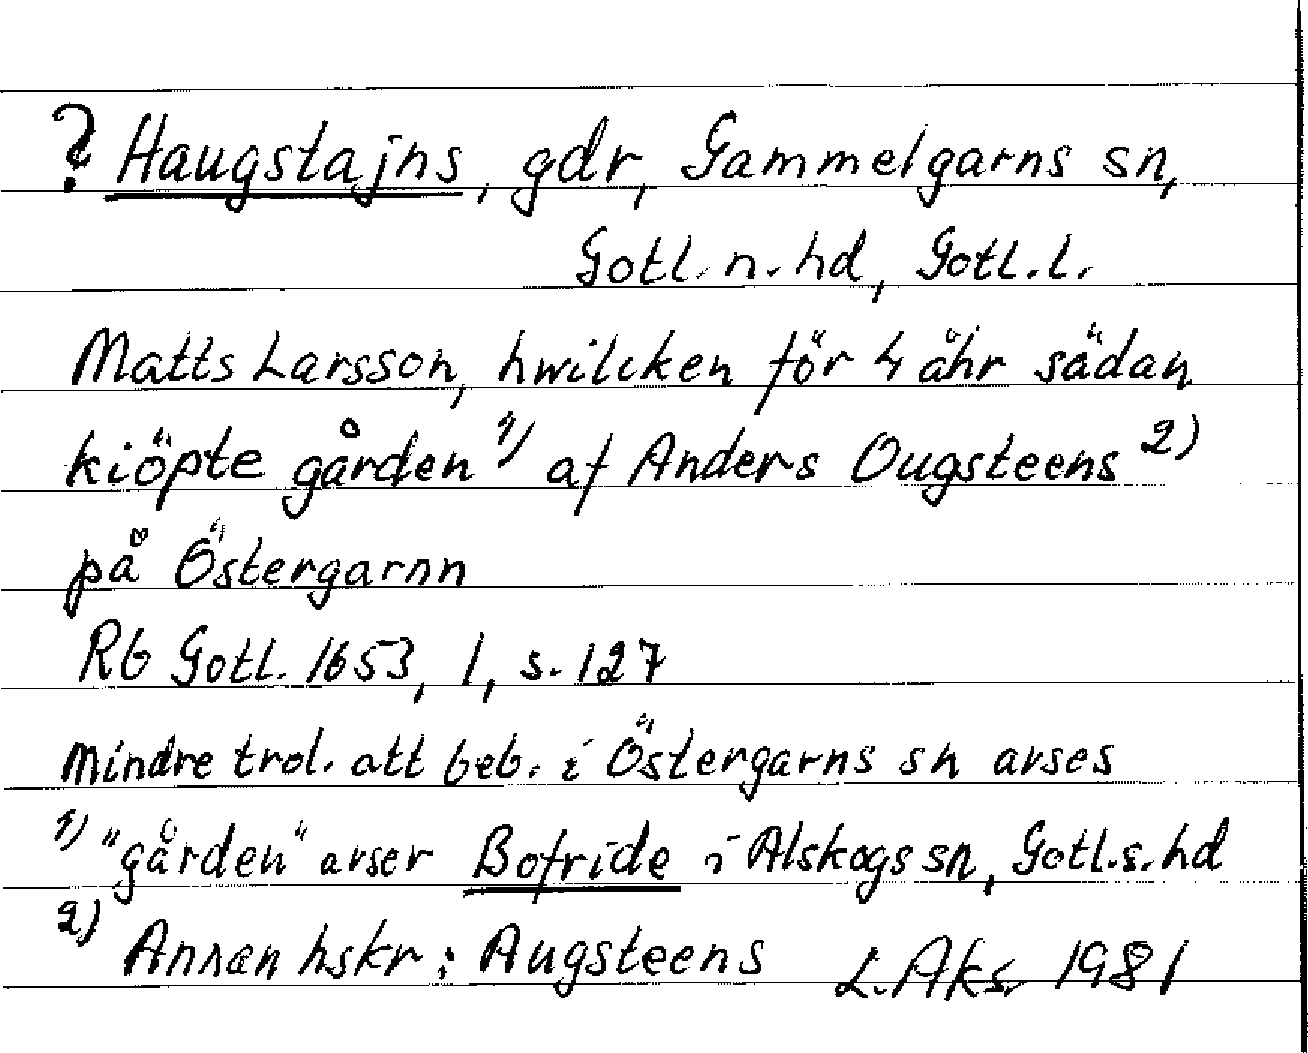 ? Haugstajns, gdr, Gammelgarns sn,
Gotl. n. hd, Gotl. l.
Matts Larsson, hwilcken för 4 åhr sädan
kiöpte gården 1) af Anders Ougsteens 2)
på Östergarnn
Rb Gotl. 1653, 1, s. 127
Mindre trol. att beb. i Östergarns sn avses
1) "gården" avser Bofride i Alskogs sn, Gotl. s. hd
2) Annan hskr: Augsteens L. Aks. 1981